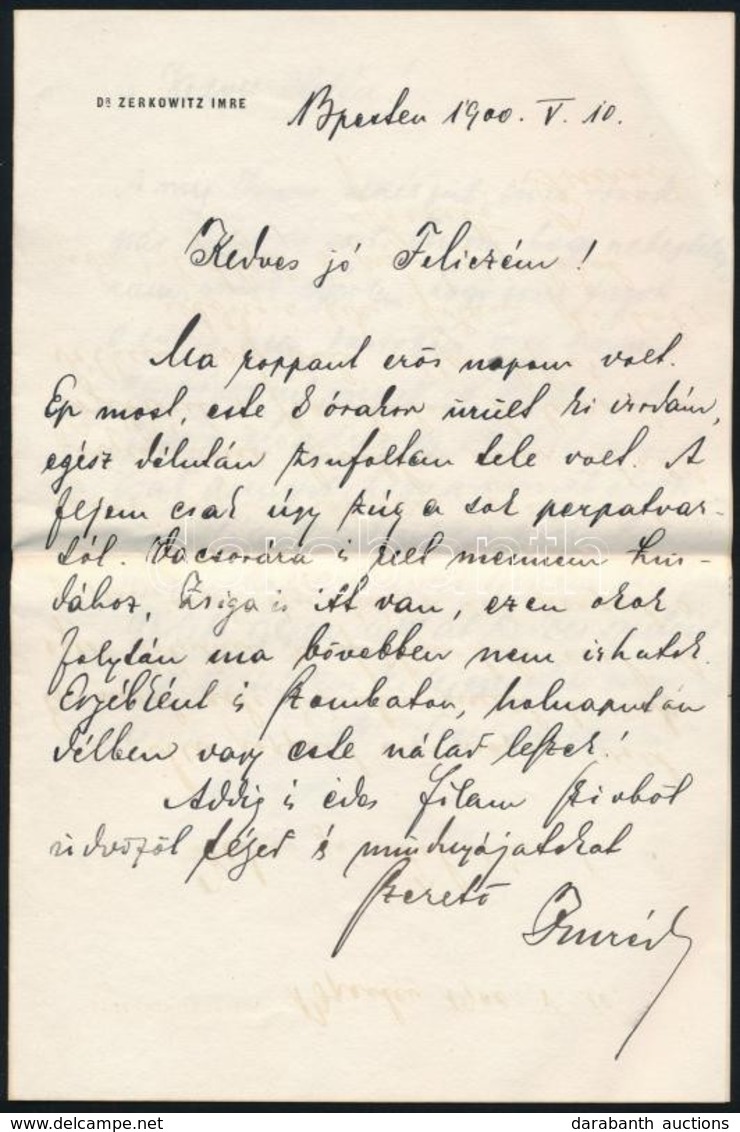 DR ZERKOWITZ IMRE
Bpesten 1900. V. 10.
Kedves jó Feliczém!
Ma roppant erős napom volt.
Ep most, este 8 órakor ürült ki irodám,
egész délután zsufoltam tele volt. A
fejem csak úgy zúg a sok perpatvar-
tól. Vacsorára is kell mennem
dához, Zsiga is itt van, ezen okok
folytán ma bővebben nem irhatok.
Egyébként is szombaton, holnapután
délben vagy este nálad leszek!
Addig is édes szivből
üdvözöl téged és mindnyájatokat
szerető
Imréd
darabanth
darabanth auctions